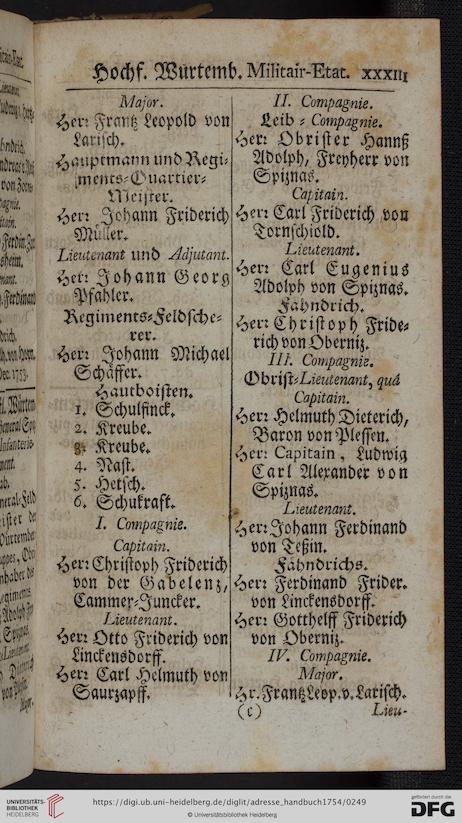 Hochf. Würtemb. Militair-Etat. XXXIII
Major.
Herr Frantz Leopold von
Larisch.
Hauptmann und Regi-
ments-Quartier-
Meister.
Herr Johann Friderich
Müller.
Lieutenant und Adjutant.
Herr Johann Georg
Pfahler.
Regiments-Feldsche-
rer.
Herr Johann Michael
Schäffer.
Hautboisten.
1. Schulfinck.
2. Kreube.
3. Kreube.
4. Nast.
5. Hetsch.
6. Schukraft.
I. Compagnie.
Capitain.
Herr Christoph Friderich
von der Gabelenz,
Cammer-Juncker.
Lieutenant.
Herr Otto Friderich von
Linckensdorff.
Herr Carl Helmuth von
Saurzapff.
II. Compagnie.
Leib-Compagnie.
Herr Obrister Hannß
Adolph, Freyherr von
Spiznas.
Capitain.
Herr Carl Friderich von
Tornschiold.
Lieutenant.
Herr Carl Eugenius
Adolph von Spiznas.
Fähndrich.
Herr Christoph Fride-
rich von Oberniz.
III. Compagnie.
Obrist-Lieutenant, quà
Capitain.
Herr Helmuth Dieterich,
Baron von Plessen.
Herr Capitain, Ludwig
Carl Alexander von
Spiznas.
Lieutenant.
Herr Johann Ferdinand
von Teßin.
Fähndrichs.
Herr Ferdinand Frider.
von Linckensdorff.
Herr Gotthelff Friderich
von Oberniz.
IV. Compagnie.
Major.
Hr. Frantz Leop. v. Larisch.
(c) Lieu-
UNIVERSITÄTS-
BIBLIOTHEK
HEIDELBERG
https://digi.ub.uni-heidelberg.de/diglit/adresse_handbuch1754/0249
© Universitätsbibliothek Heidelberg
gefördert durch die
DFG